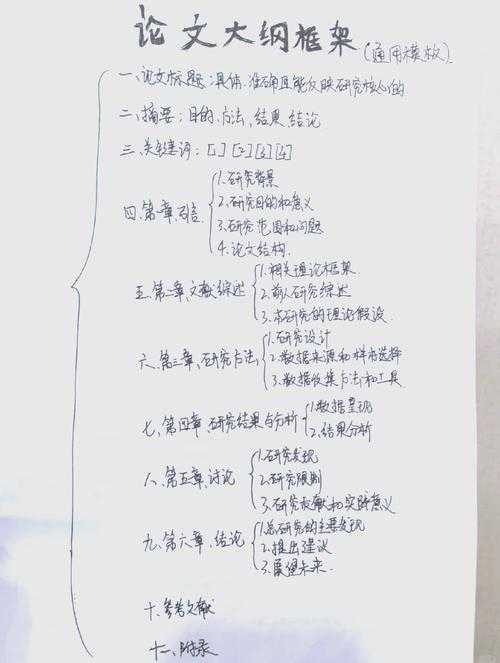 论文大纲框架(通用模板)
一、论文标题:具体、准确且能反映研究核心的
二、摘要:目的、方法、结果、结论
三、关键词:[1][2][3][4]
四、第一章、引言
1.研究背景
2.研究目的和意义
3.研究范围和问题
4.论文结构.
五、第二章、文献综述
1.相关理论框架
2.前人研究综述
3.本研究的理论假设.
六、第三章、研究方法
1.研究设计
2.数据来源和样本选择
3.数据收集方法和工具
七、第四章、研究结果与分析
1.数据呈现
2.结果分析
八、第五章、讨论
1.研究发现
2.研究限制
3.研究贡献和实际意义
九、第六章、结论
1.总研究的主要发现
2.提出建议
3.展望未来.
十、参考文献
十一、附录